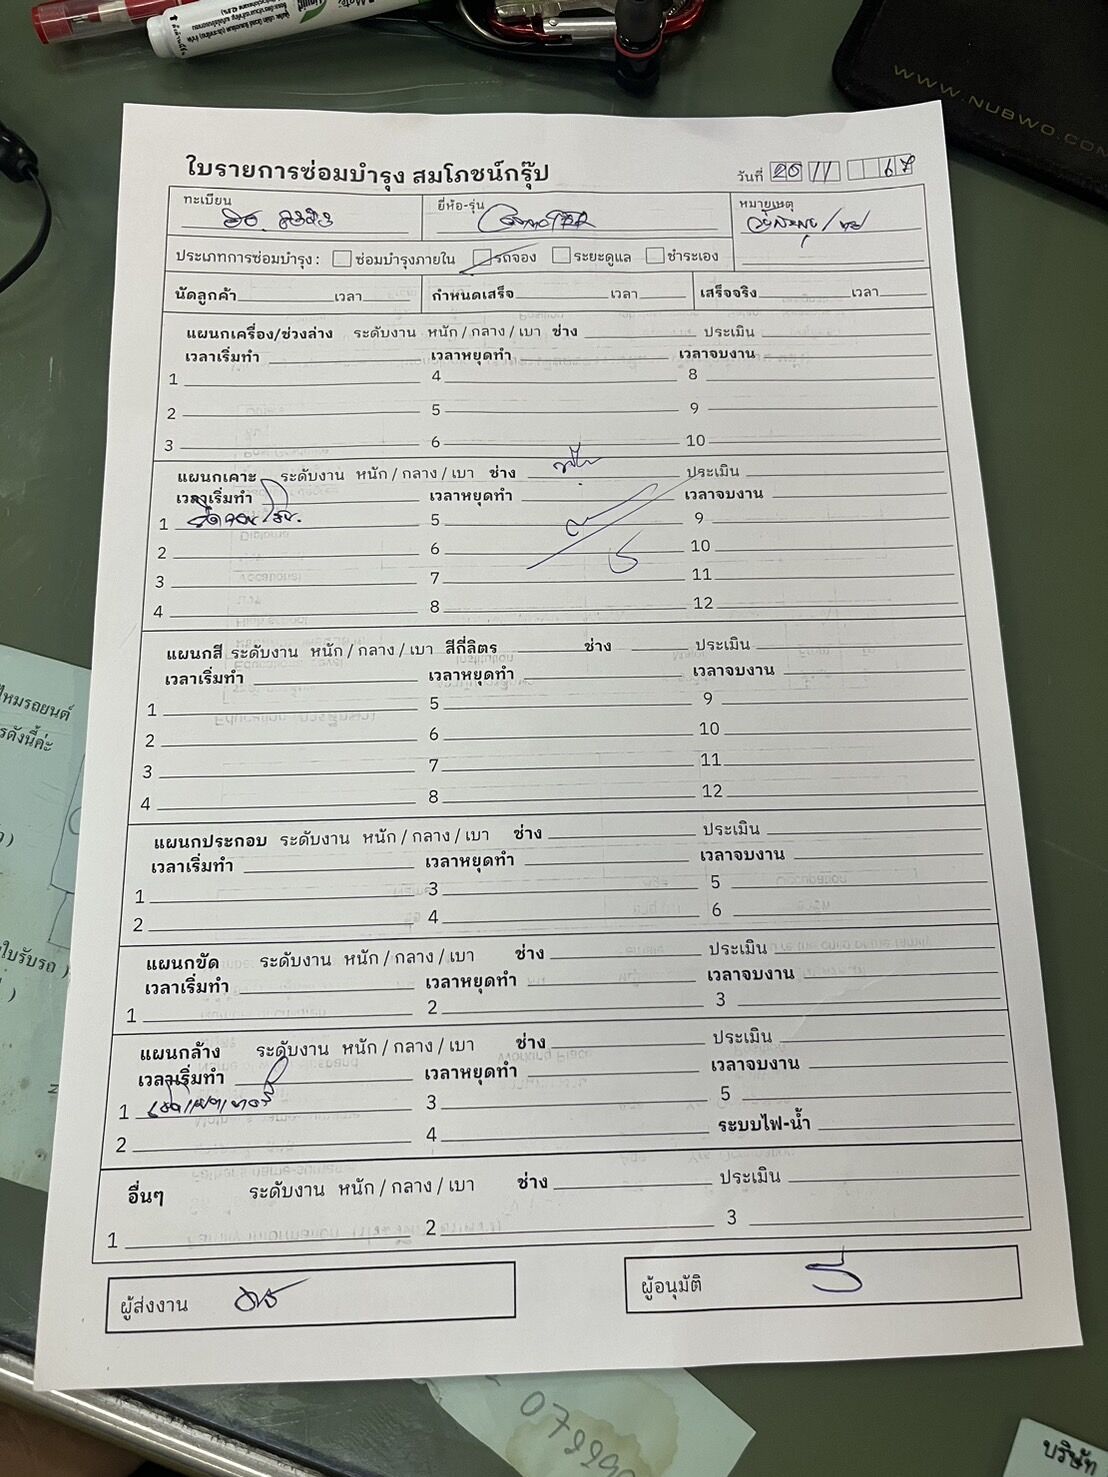 WWW.NUBWO.COM
ใบรายการซ่อมบำรุง สมโภชน์กรุ๊ป
วันที่ 20 11 67
ทะเบียน
ยี่ห้อ-รุ่น
หมายเหตุ
ประเภทการซ่อมบำรุง : ซ่อมบำรุงภายใน รถจอง ระยะดูแล ชำระเอง
นัดลูกค้า เวลา กำหนดเสร็จ เวลา เสร็จจริง เวลา
แผนกเครื่อง/ช่วงล่าง ระดับงาน หนัก / กลาง / เบา ช่าง ประเมิน
เวลาเริ่มทำ เวลาหยุดทำ เวลาจบงาน
1 4 8
2 5 9
3 6 10
แผนกเคาะ ระดับงาน หนัก / กลาง / เบา ช่าง ประเมิน
เวลาเริ่มทำ เวลาหยุดทำ เวลาจบงาน
1 5 9
2 6 10
3 7 11
4 8 12
แผนกสี ระดับงาน หนัก / กลาง / เบา สีกี่ลิตร ช่าง ประเมิน
เวลาเริ่มทำ เวลาหยุดทำ เวลาจบงาน
1 5 9
2 6 10
3 7 11
4 8 12
แผนกประกอบ ระดับงาน หนัก / กลาง / เบา ช่าง ประเมิน
เวลาเริ่มทำ เวลาหยุดทำ เวลาจบงาน
1 3 5
2 4 6
แผนกขัด ระดับงาน หนัก / กลาง / เบา ช่าง ประเมิน
เวลาเริ่มทำ เวลาหยุดทำ เวลาจบงาน
1 2 3
แผนกล้าง ระดับงาน หนัก / กลาง / เบา ช่าง ประเมิน
เวลาเริ่มทำ เวลาหยุดทำ เวลาจบงาน
1 3 5
2 4 ระบบไฟ-น้ำ
อื่นๆ ระดับงาน หนัก / กลาง / เบา ช่าง ประเมิน
1 2 3
ผู้ส่งงาน
ผู้อนุมัติ
ไหมรถยนต์
รดังนี้ค่ะ
ใบรับรถ )
บริษัท